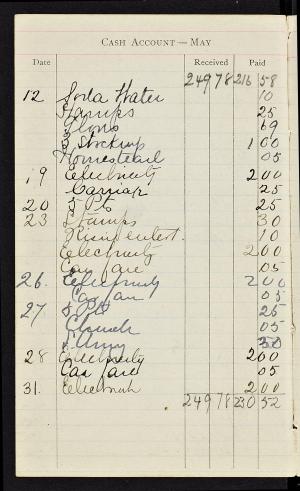 CASH ACCOUNT — MAY
Date Received Paid
249 78 216 58
12 Soda Water 10
Stamps 25
Gloves 69
3 Stockings 1 00
Homestead 05
19 Electricity 2 00
Carriage 25
20 5 Pts 25
23 Stamps 30
Independent. 10
Electricity 2 00
Car fare 05
26. Electricity 2 00
Car fare 05
27 5 Pts 25
Church 05
30
28 Electricity 2 00
Car fare 05
31. Electricity 2 00
249 78 230 52